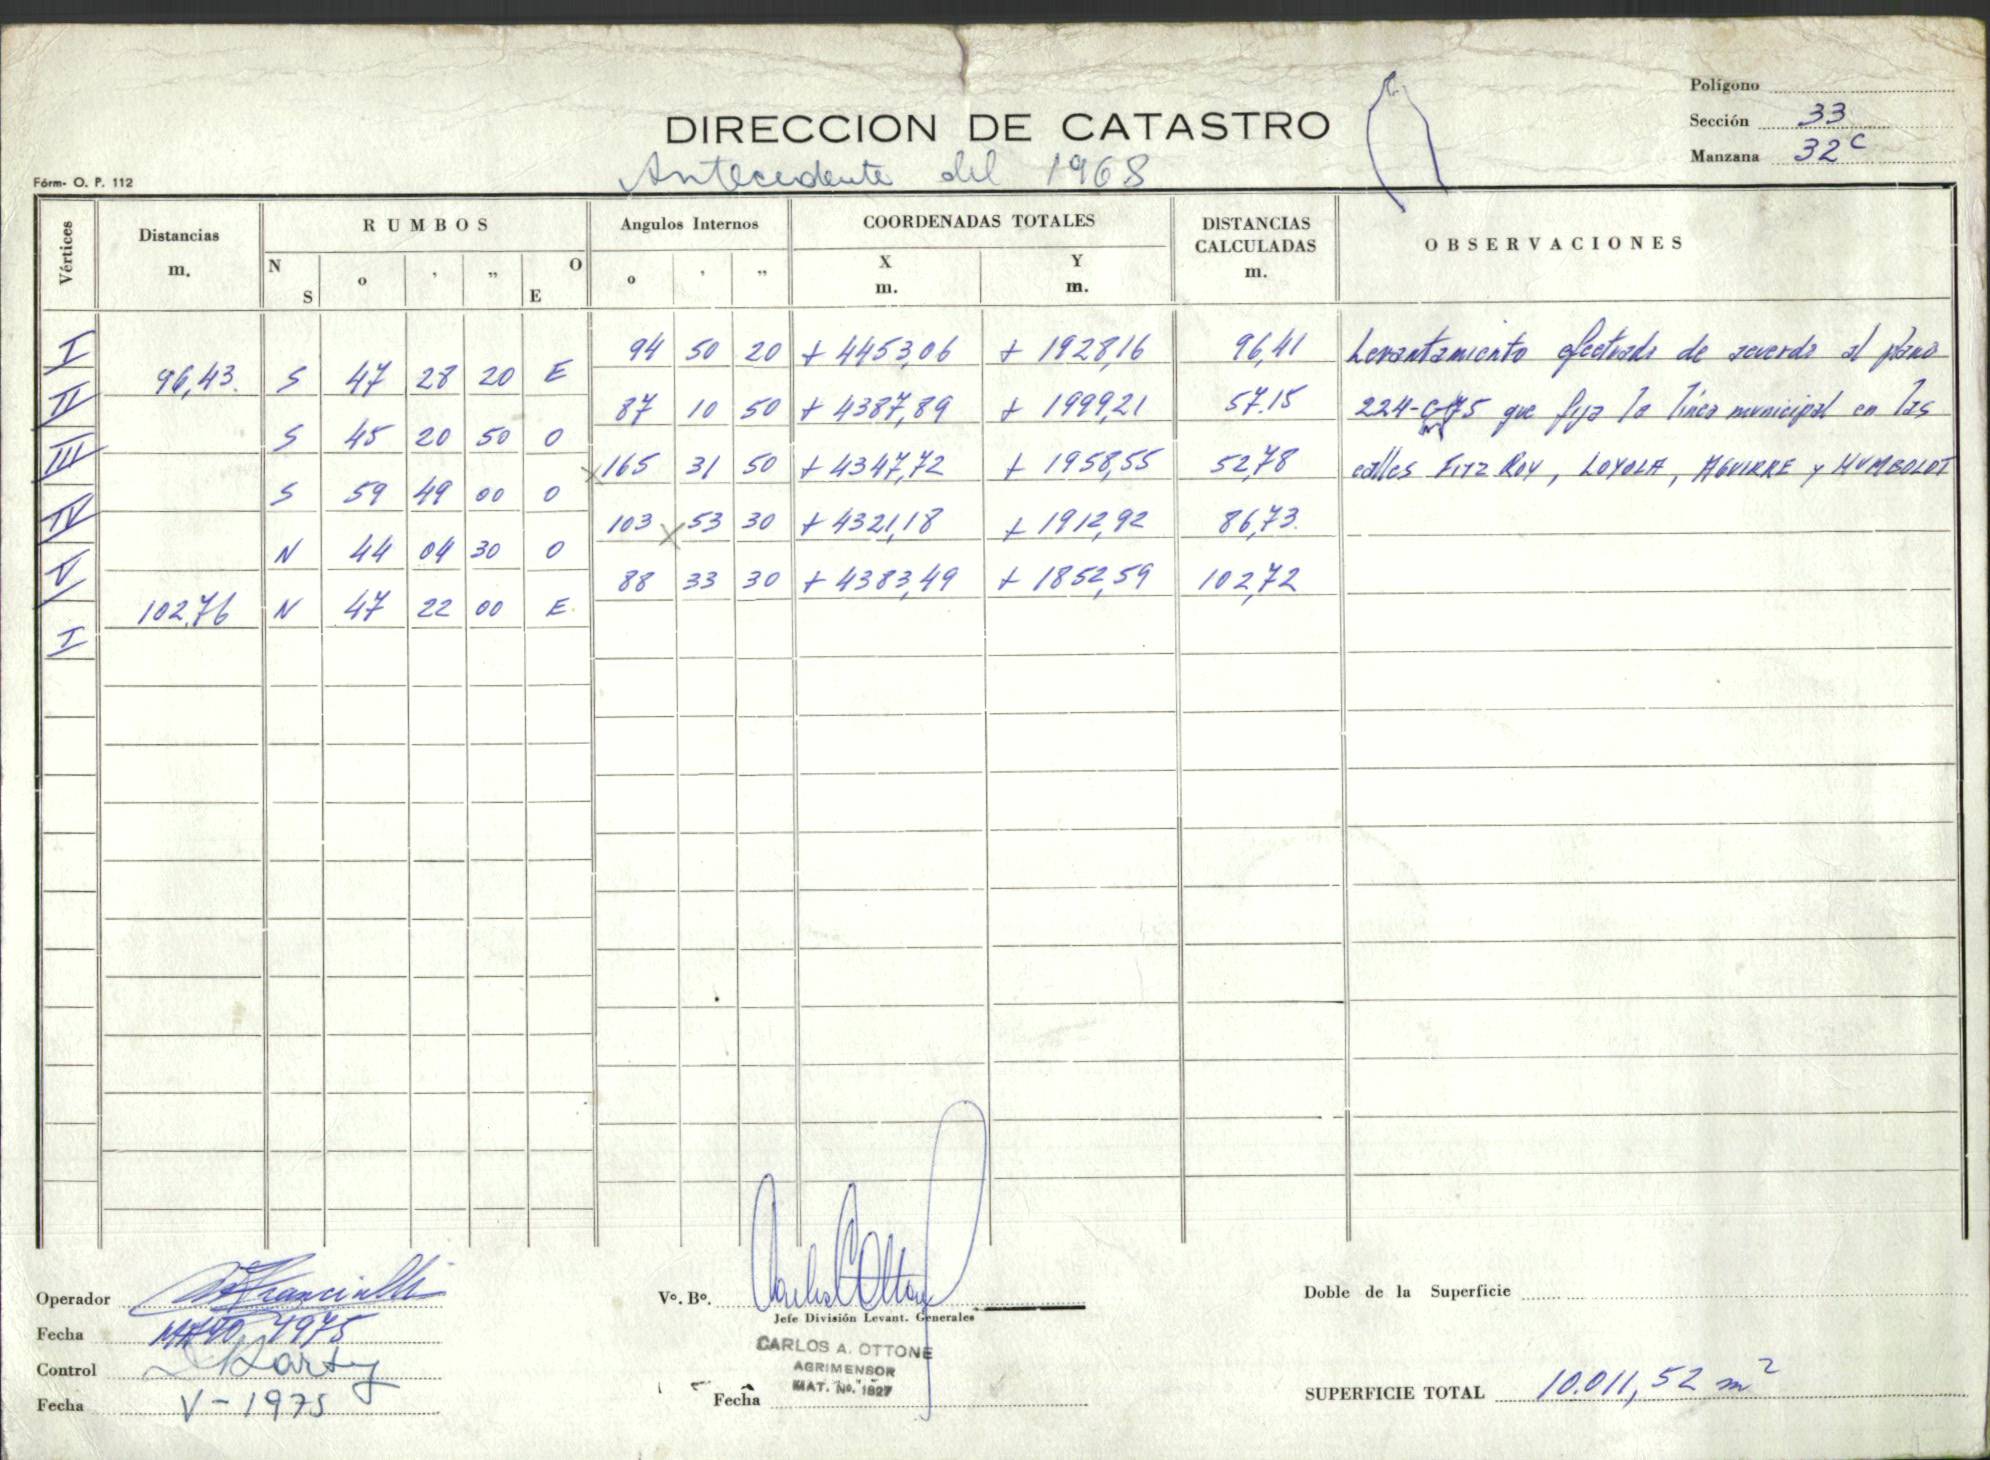 Polígono
DIRECCION DE CATASTRO
Sección 33
Manzana 32c
Antecedente del 1968
Fórm- O. P. 112
Vértices Distancias m. RUMBOS N S o ' " O E Angulos Internos o ' " COORDENADAS TOTALES X m. Y m. DISTANCIAS CALCULADAS m. OBSERVACIONES
I 94 50 20 + 4453,06 + 1928,16 96,41 Levantamiento efectuado de acuerdo al plano
96,43. S 47 28 20 E
II 87 10 50 + 4387,89 + 1999,21 57.15 224-C-75 que fija la línea municipal en las
S 45 20 50 O
III 165 31 50 + 4347,72 + 1958,55 52,78 calles FITZ ROY, LOYOLA, AGUIRRE y HUMBOLDT
S 59 49 00 O
IV 103 53 30 + 4321,18 + 1912,92 86,73.
N 44 04 30 O
V 88 33 30 + 4383,49 + 1852,59 102,72
102,76 N 47 22 00 E.
I
Operador
Vº. Bº. Carlos A Ottone
Doble de la Superficie
Jefe División Levant. Generales
Fecha MAYO 1975
CARLOS A. OTTONE
AGRIMENSOR
MAT. No. 1827
Control
Fecha V-1975
Fecha
SUPERFICIE TOTAL 10.011,52 m2